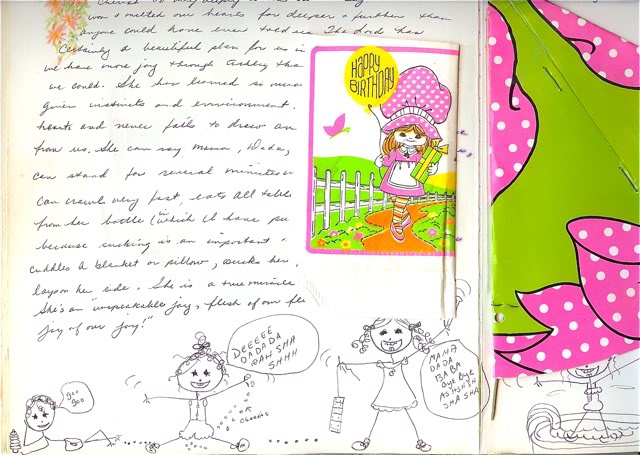 won & melted our hearts far deeper & further than
anyone could have ever told us. The Lord has
Certainly a beautiful plan for us in
we have more joy through Ashley tha
we could. She has learned so
given instincts and environment.
hearts and never fails to draw an
from us. She can say mama, Dada,
can stand for several minutes
can crawl very fast, eats all table
from her bottle (which I have
because sucking is an important
cuddles a blanket or pillow, sucks her
lays on her side. She is a true miracle
She's an "unspeakable joy, flesh of our fle
joy of our joy!"
HAPPY
BIRTHDAY
goo
goo
DEEEEE
DADADA
RAH SHA
SHHH
cheerios
MAMA
DADA
BABA
Bye Bye
ASHSHSH
SHA SHA